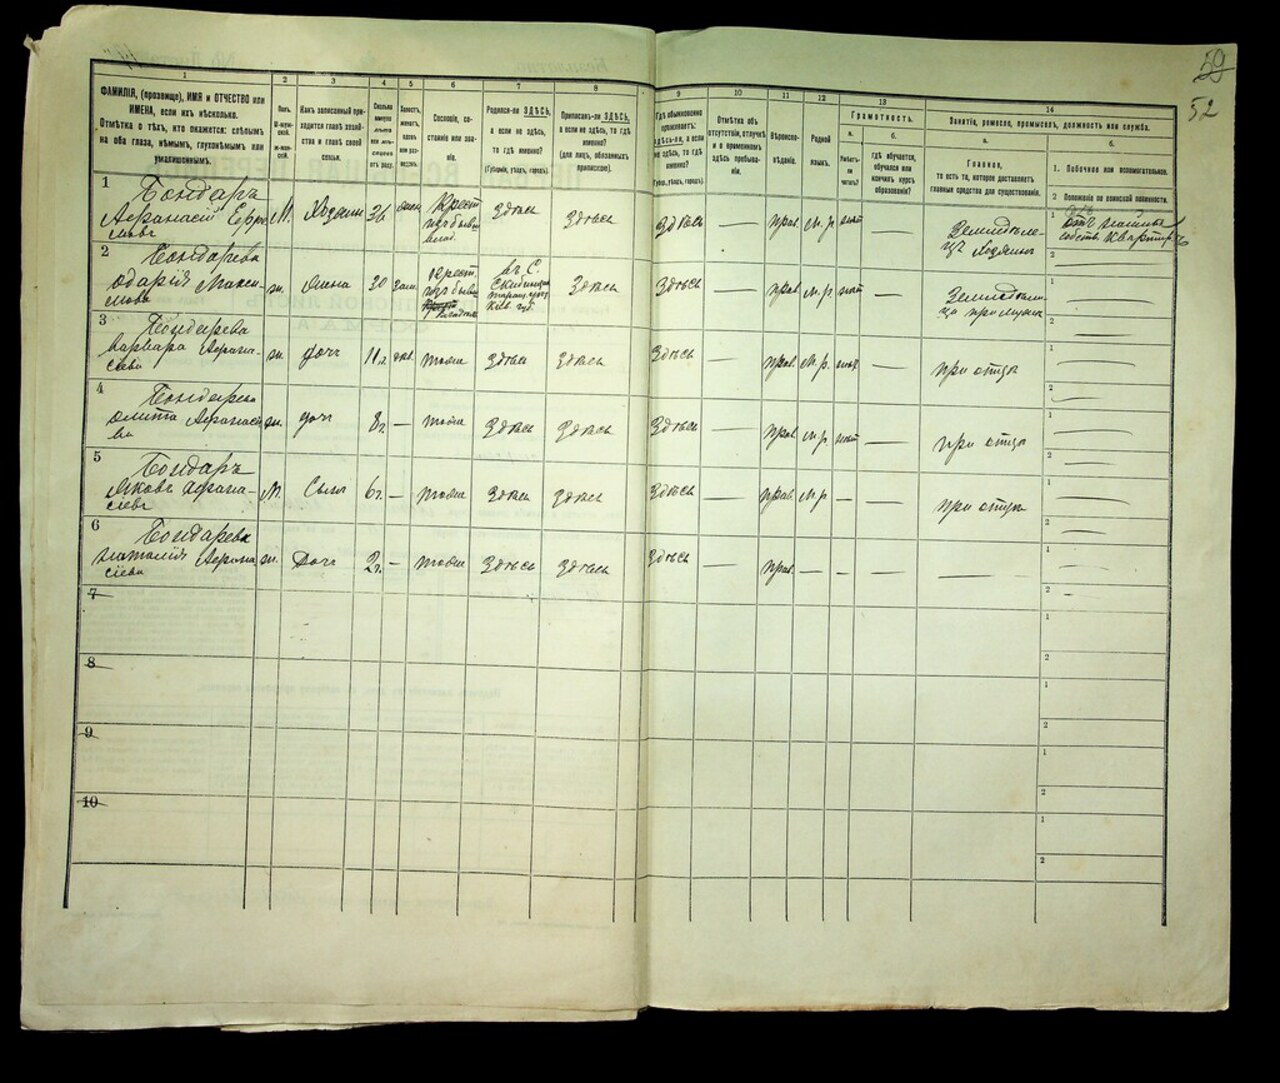 50
52
1
2
3
4
5
6
7
8
9
10
11
12
13
14
ФАМИЛІЯ, (прозвище), ИМЯ и ОТЧЕСТВО или
ИМЕНА, если ихъ нѣсколько.
Отмѣтка о тѣхъ, кто окажется: слѣпымъ
на оба глаза, нѣмымъ, глухонѣмымъ или
умалишоннымъ.
Полъ.
М-муж-
ской.
Ж-жен-
скій.
Какъ записанный при-
ходится главѣ хозяй-
ства и главѣ своей
семьи.
Сколько
минуло
лѣтъ
или мѣ-
сяцевъ
отъ роду.
Холостъ,
женатъ,
вдовъ
или раз-
веденъ.
Сословіе, со-
стояніе или зва-
ніе.
Родился-ли ЗДѢСЬ,
а если не здѣсь,
то гдѣ именно?
(Губернія, уѣздъ, городъ).
Приписанъ-ли ЗДѢСЬ,
а если не здѣсь, то гдѣ
именно?
(для лицъ, обязанныхъ
припискою).
Гдѣ обыкновенно
проживаетъ:
здѣсь-ли, а если
не здѣсь, то гдѣ
именно?
(Губ., уѣздъ, городъ).
Отмѣтка объ
отсутствіи, отлучкѣ
и о временномъ
здѣсь пребыва-
ніи.
Вѣроиспо-
вѣданіе.
Родной
языкъ.
Грамотность.
а.
Умѣетъ-
ли чи-
тать?
б.
гдѣ обучается,
обучался или
кончилъ курсъ
образованія?
Занятіе, ремесло, промыселъ, должность или служба.
а.
Главное,
то есть то, которое доставляетъ
главныя средства для существованія.
б.
1. Побочное или вспомогательное.
2 Положеніе по воинской повинности.
1
Бондаръ
Афанасій Ефре
мовъ
М.
Хозяинъ
36
Крест.
изъ бывш
влад.
Здѣсь
Здѣсь
Здѣсь
—
прав.
м. р.
нѣт
—
Земледѣле-
цъ Хозяинъ
1
2
2
Бондарева
Дарія Макси-
мова
ж.
жена
30
зам.
Крест.
изъ бывш
въ С.
Кіев. губ.
Здѣсь
Здѣсь
—
прав.
м. р.
нѣт
—
1
2
3
Бондарева
Варвара Афана-
сіева
ж.
дочь
11 л.
тоже
Здѣсь
Здѣсь
Здѣсь
—
прав.
м. р.
нѣт
—
при отцѣ
1
2
4
Бондарева
Афанасі
ва
ж.
дочь
8 г.
—
тоже
Здѣсь
Здѣсь
Здѣсь
—
прав.
м. р.
нѣт
—
при отцѣ
1
2
5
Бондаръ
Яковъ Афана-
сіевъ
М.
Сынъ
6 г.
—
тоже
Здѣсь
Здѣсь
Здѣсь
—
прав.
м. р.
—
—
при отцѣ
1
2
6
Бондарева
Наталія Афана
сіева
ж.
Дочь
2 г.
—
тоже
Здѣсь
Здѣсь
Здѣсь
—
прав.
—
—
—
—
1
2
7
1
2
8
1
2
9
1
2
10
1
2